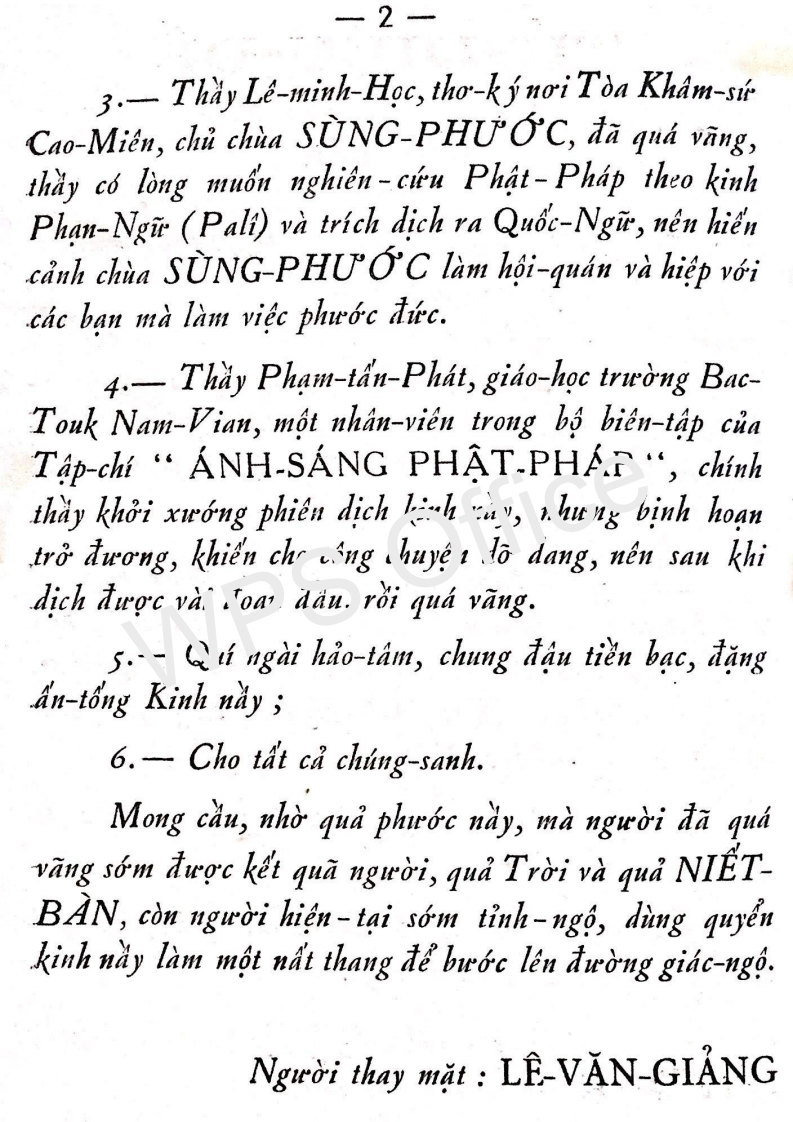 — 2 —
3.— Thầy Lê-minh-Học, thơ-ký nơi Tòa Khâm-sứ
Cao-Miên, chủ chùa SÙNG-PHƯỚC, đã quá vãng,
thầy có lòng muốn nghiên-cứu Phật-Pháp theo kinh
Phạn-Ngữ (Pali) và trích dịch ra Quốc-Ngữ, nên hiến
cảnh chùa SÙNG-PHƯỚC làm hội-quán và hiệp với
các bạn mà làm việc phước đức.
4.— Thầy Phạm-tấn-Phát, giáo-học trường Bac-
Touk Nam-Vian, một nhân-viên trong bộ biên-tập của
Tập-chí “ ÁNH-SÁNG PHẬT-PHÁP “, chính
thầy khởi xướng phiên dịch kinh nầy, nhưng bịnh hoạn
trở đương, khiến cho công chuyện dỡ dang, nên sau khi
dịch được vài đoạn đầu, rồi quá vãng.
5.— Quí ngài hảo-tâm, chung đậu tiền bạc, đặng
ấn-tống Kinh nầy ;
6.— Cho tất cả chúng-sanh.
Mong cầu, nhờ quả phước này, mà người đã quá
vãng sớm được kết quã người, quả Trời và quả NIẾT-
BÀN, còn người hiện-tại sớm tỉnh-ngộ, dùng quyển
kinh nầy làm một nất thang để bước lên đường giác-ngộ.
Người thay mặt : LÊ-VĂN-GIẢNG
WPS Office